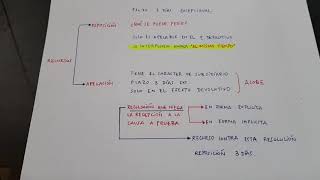 PLAZO 3 DÍAS EXCEPCIONAL
REPOSICIÓN
¿QUÉ SE PUEDE PEDIR?
SOLO ES APELABLE EN EL E. DEVOLUTIVO
SE INTERPONEN AMBAS "AL MISMO TIEMPO"
RECURSOS
TIENE EL CARÁCTER DE SUBSIDIARIO
APELACIÓN
PLAZO 3 DÍAS
SOLO EN EL EFECTO DEVOLUTIVO
RESOLUCIÓN QUE NIEGA
LA RECEPCIÓN A LA
CAUSA A PRUEBA
EN FORMA EXPLÍCITA
EN FORMA IMPLÍCITA
RECURSO CONTRA ESTA RESOLUCIÓN
REPOSICIÓN 3 DÍAS